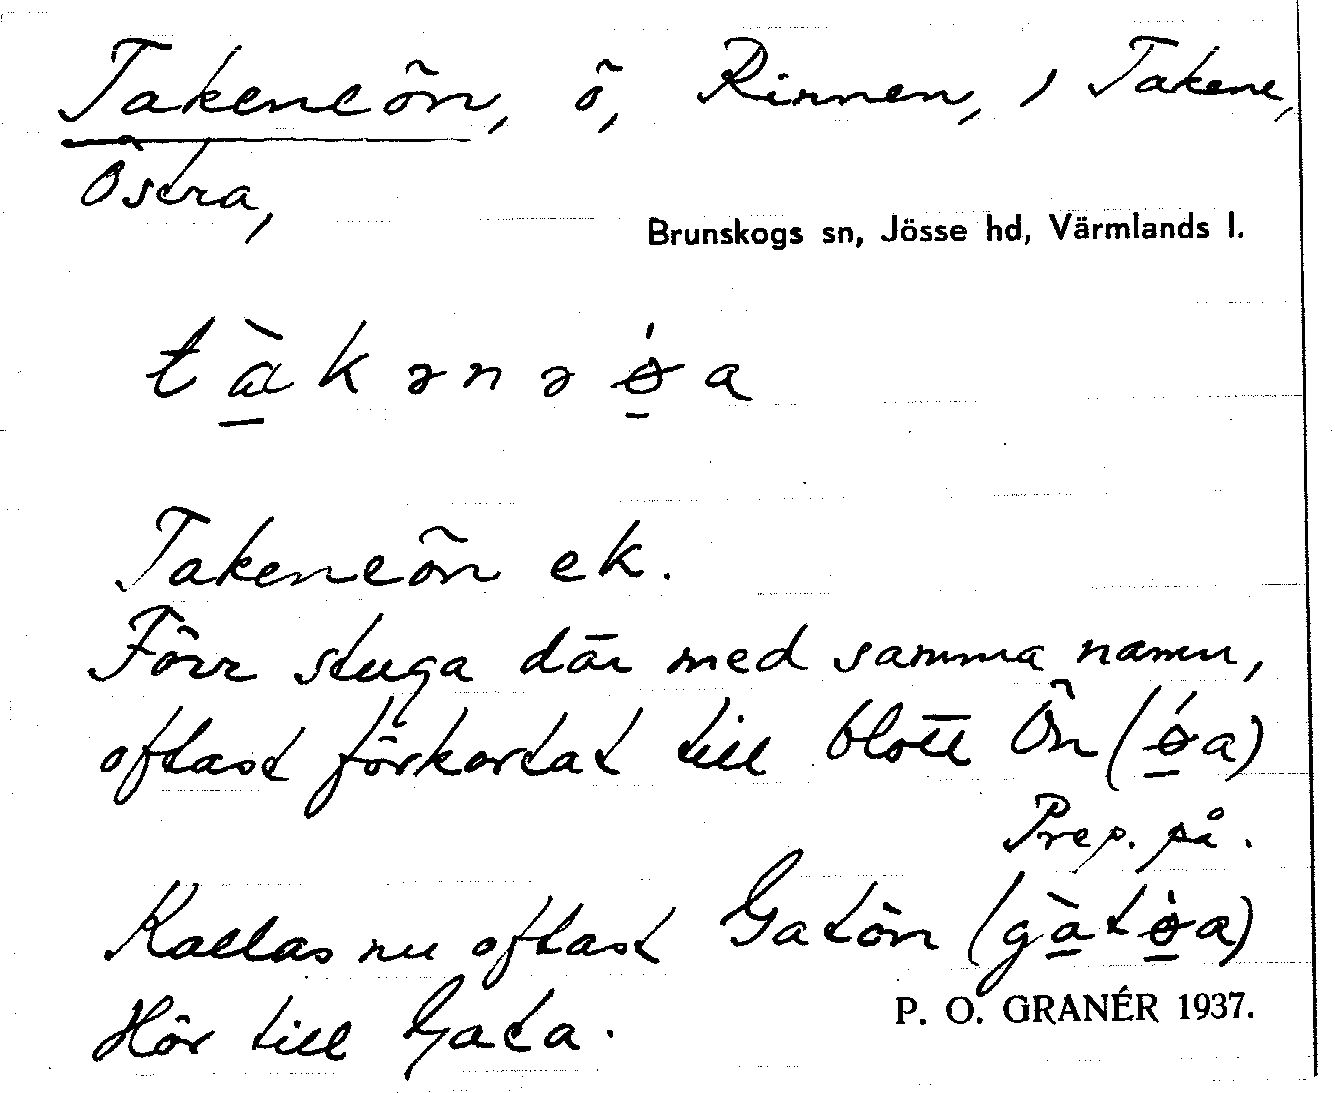 Takeneön, ö, Rinnen, i Takene,
Östra,
Brunskogs sn, Jösse hd, Värmlands l.
tàkənəǿa
Takeneön ek.
Förr stuga där med samma namn,
oftast förkortat till blott Ön (ǿa)
Prep. på.
Kallas nu oftast Gatön (gàtǿa)
Hör till Gata.
P. O. GRANÉR 1937.